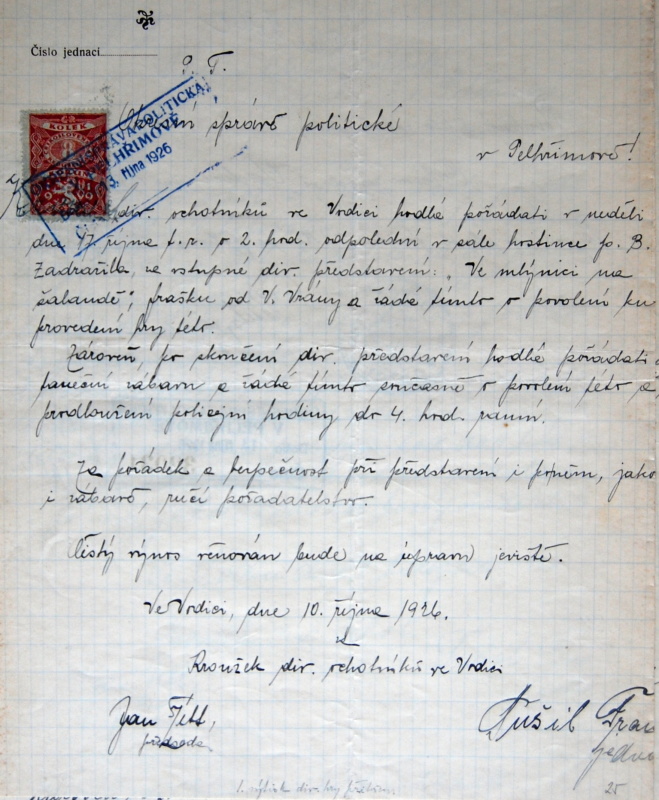 Číslo jednací
P. T.
Okresní správě politické
v Pelhřimově!
KOLEK
SPRÁVA POLITICKÁ
PELHŘIMOVĚ
října 1926
div. ochotníků ve Vodici hodlá pořádati v neděli
dne 17. října t. r. o 2. hod. odpolední v sále hostince p. B.
Zadražila, za vstupné div. představení: „Ve mlýnici na
šalandě", frašku od V. Vrány a žádá tímto o povolení ku
provedení hry této.
Zároveň, po skončení div. představení hodlá pořádati
taneční zábavu a žádá tímto současně o povolení této a
prodloužení policejní hodiny do 4. hod. ranní.
Za pořádek a bezpečnost při představení i po něm, jako
i zábavě, ručí pořadatelstvo.
Čistý výnos věnován bude na úpravu jeviště.
Ve Vodici, dne 10. října 1926.
Kroužek div. ochotníků ve Vodici
Jan Fětt,
předseda
Tušil Fran
jedna
25